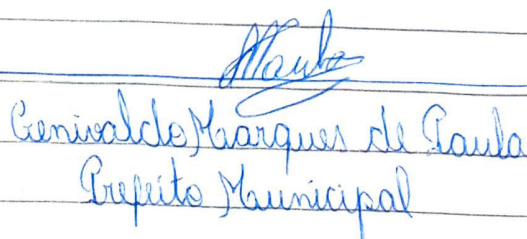 Genivaldo Marques de Paula
Prefeito Municipal